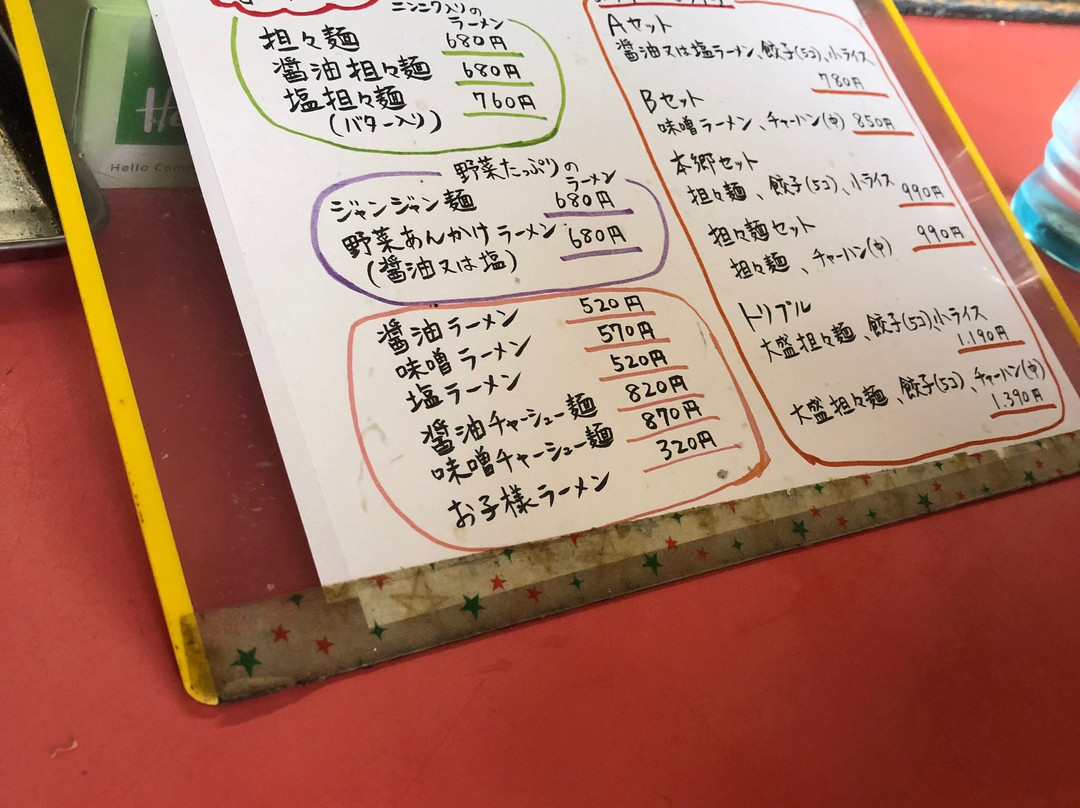 ニンニク入りの
ラーメン
担々麺 680円
醤油担々麺 680円
塩担々麺 760円
(バター入り)
野菜たっぷりの
ラーメン
ジャンジャン麺 680円
野菜あんかけラーメン 680円
(醤油又は塩)
醤油ラーメン 520円
味噌ラーメン 570円
塩ラーメン 520円
醤油チャーシュー麺 820円
味噌チャーシュー麺 870円
お子様ラーメン 320円
Aセット
醤油又は塩ラーメン、餃子(5コ)、小ライス
780円
Bセット
味噌ラーメン、チャーハン(中) 850円
本郷セット
担々麺、餃子(5コ)、小ライス 990円
担々麺セット 990円
担々麺、チャーハン(中)
トリプル
大盛担々麺、餃子(5コ)、小ライス
1.190円
大盛担々麺、餃子(5コ)、チャーハン(中)
1.390円
Hello